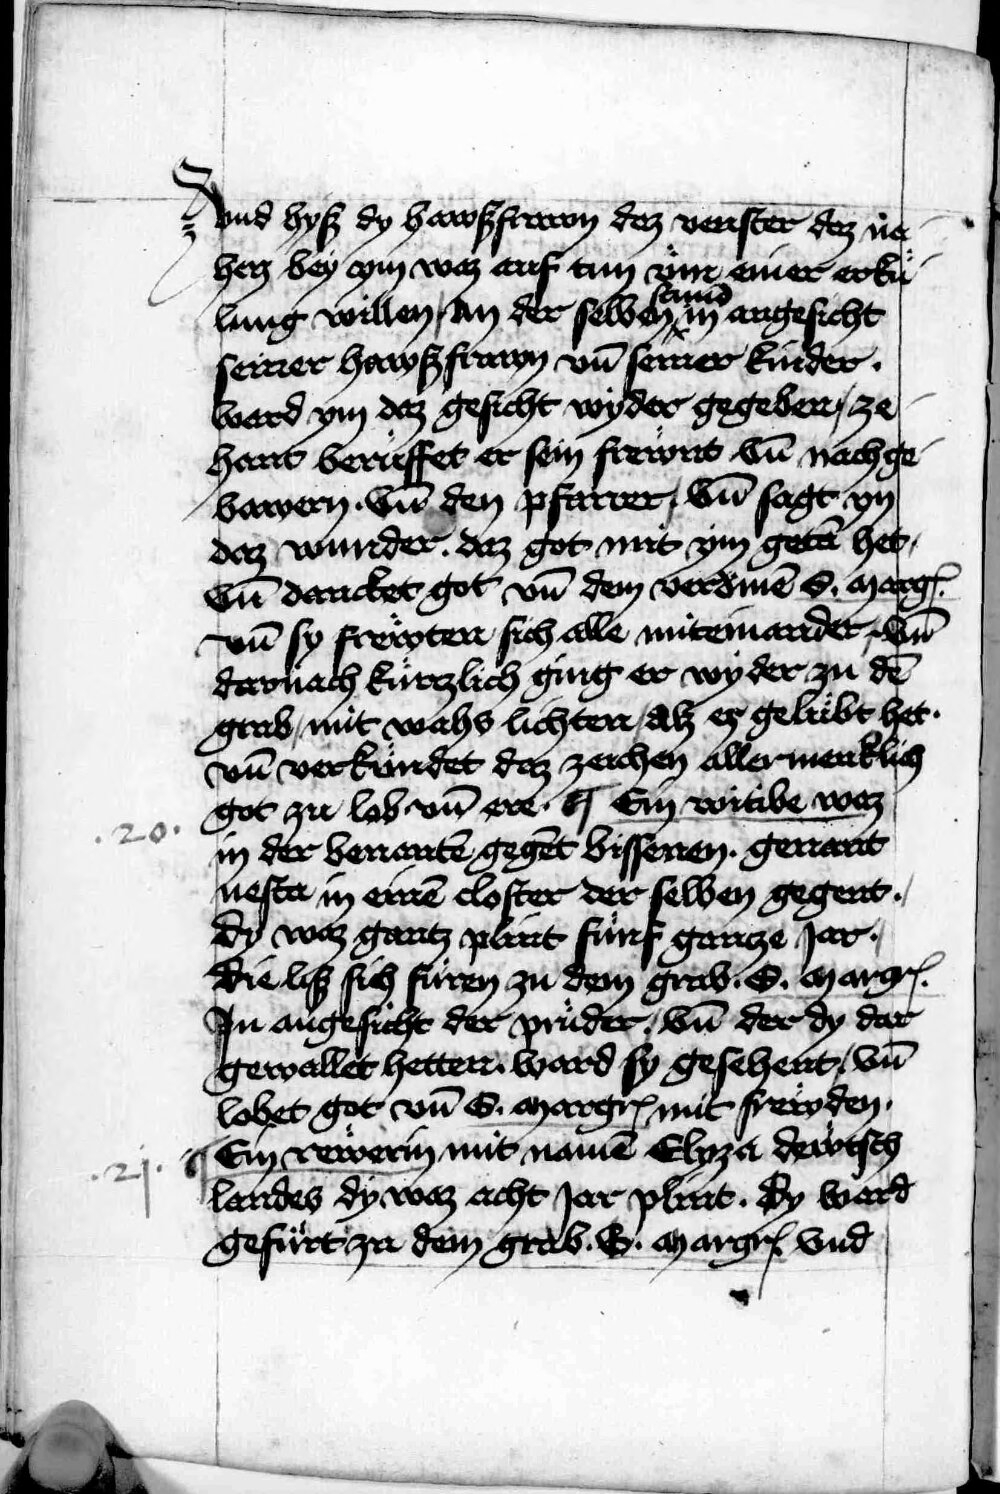 vnd hyß dy hawßfrawn daz venster daz na
hez bey ym waz auf tun vmb einer erku̍
lung willen / An der selben stund in angesicht
seiner hawßfrawn vn̄ seiner kinder.
ward ym daz gesicht wyder gegeben / ze
hant beru̍ffet er sein frewnt Vn̄ nachge
bawern. Vn̄ den pfarrer / Vn̄ sagt yn
daz wunder. daz got mit ym getā het /
Vn̄ dancket got vn̄ dem S. Marg̃.
vn̄ sy frewten sich alle miteinander / Vn̄
darnach ku̍rczlich ging er wyder zu dē
grab / mit wahs lichten / Alz er gelubt het.
vn̄ verku̍ndet daz zeichen allermenklich
got zu lob vn̄ ere. ¶ Ein witibe waz
.20.
in der benantē gegēt bissenen. genant
nesta in einē closter der selben gegent.
Dy waz gantz plint fu̍nf gantze Jar.
Die liß sich fu̍ren zu dem grab. S. Margr̃.
Jn angesicht der pru̍der. Vn̄ der dy dar
gewallet hetten. ward sy gesehent / Vn̄
lobet got vn̄ S. Margr̃ mit frewden.
.21. ¶ Ein rewerin mit namē Elyza dewtsch
landes dy waz acht Jar plint. Dy ward
gefu̍rt zu dem grab. S. Margr̃. Vnd